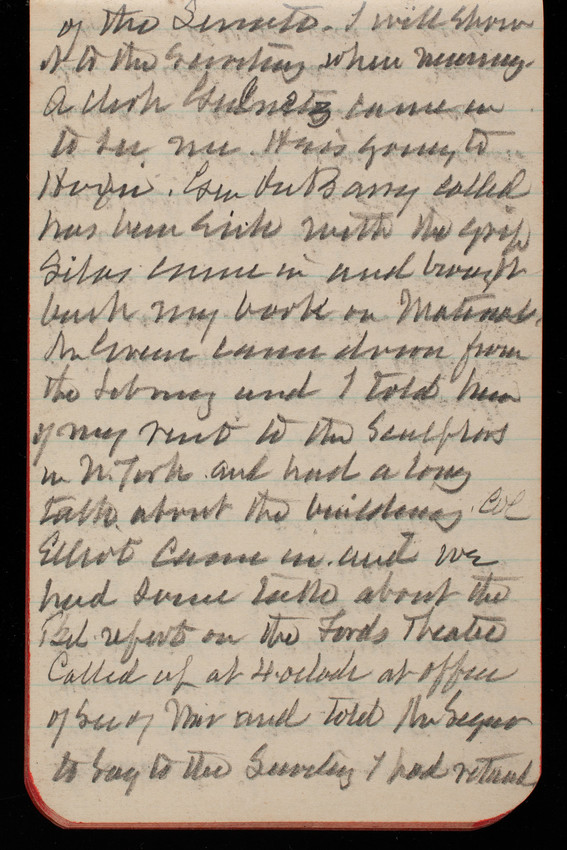 of the Senate. I will show
it to the Secretary when
A clerk came in
to see me. He is going to
. Genl Du Barry called
has been sick with the grip
Silas came in and brought
back my book on Materials.
Mr Green came down from
the Library and I told him
of my visit to the Sculptors
in N. York. and had a long
talk about the building. Col
Elliot came in. and we
had some talk about the
Bd. report on the Fords Theatre
Called up at 4 oclock at office
of Sec of War and told Mr
to say to the Secretary I had returnd